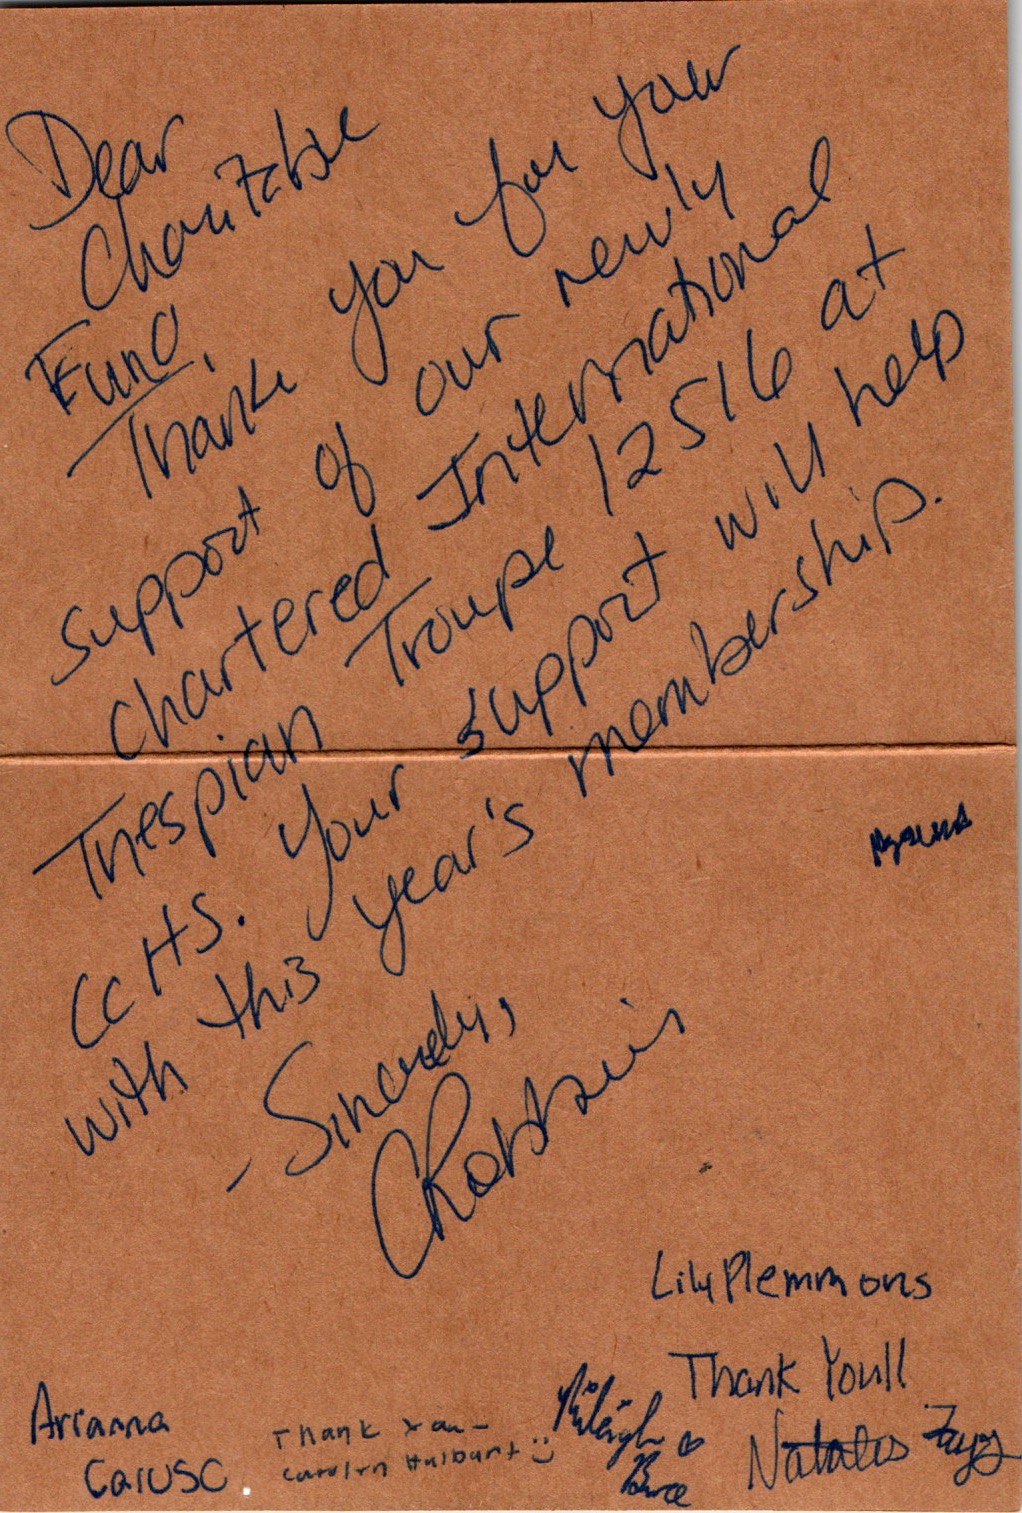 Dear
Charitable
Fund,
Thank you for your
support of our newly
chartered International
Thespian Troupe 12516 at
CCHS. Your support will help
with this year's membership.
- Sincerely,
CRobbins
Lily Plemmons
Thank You!!
Arianna
Caruso
Thank You -
Carolyn Hulbunt :)